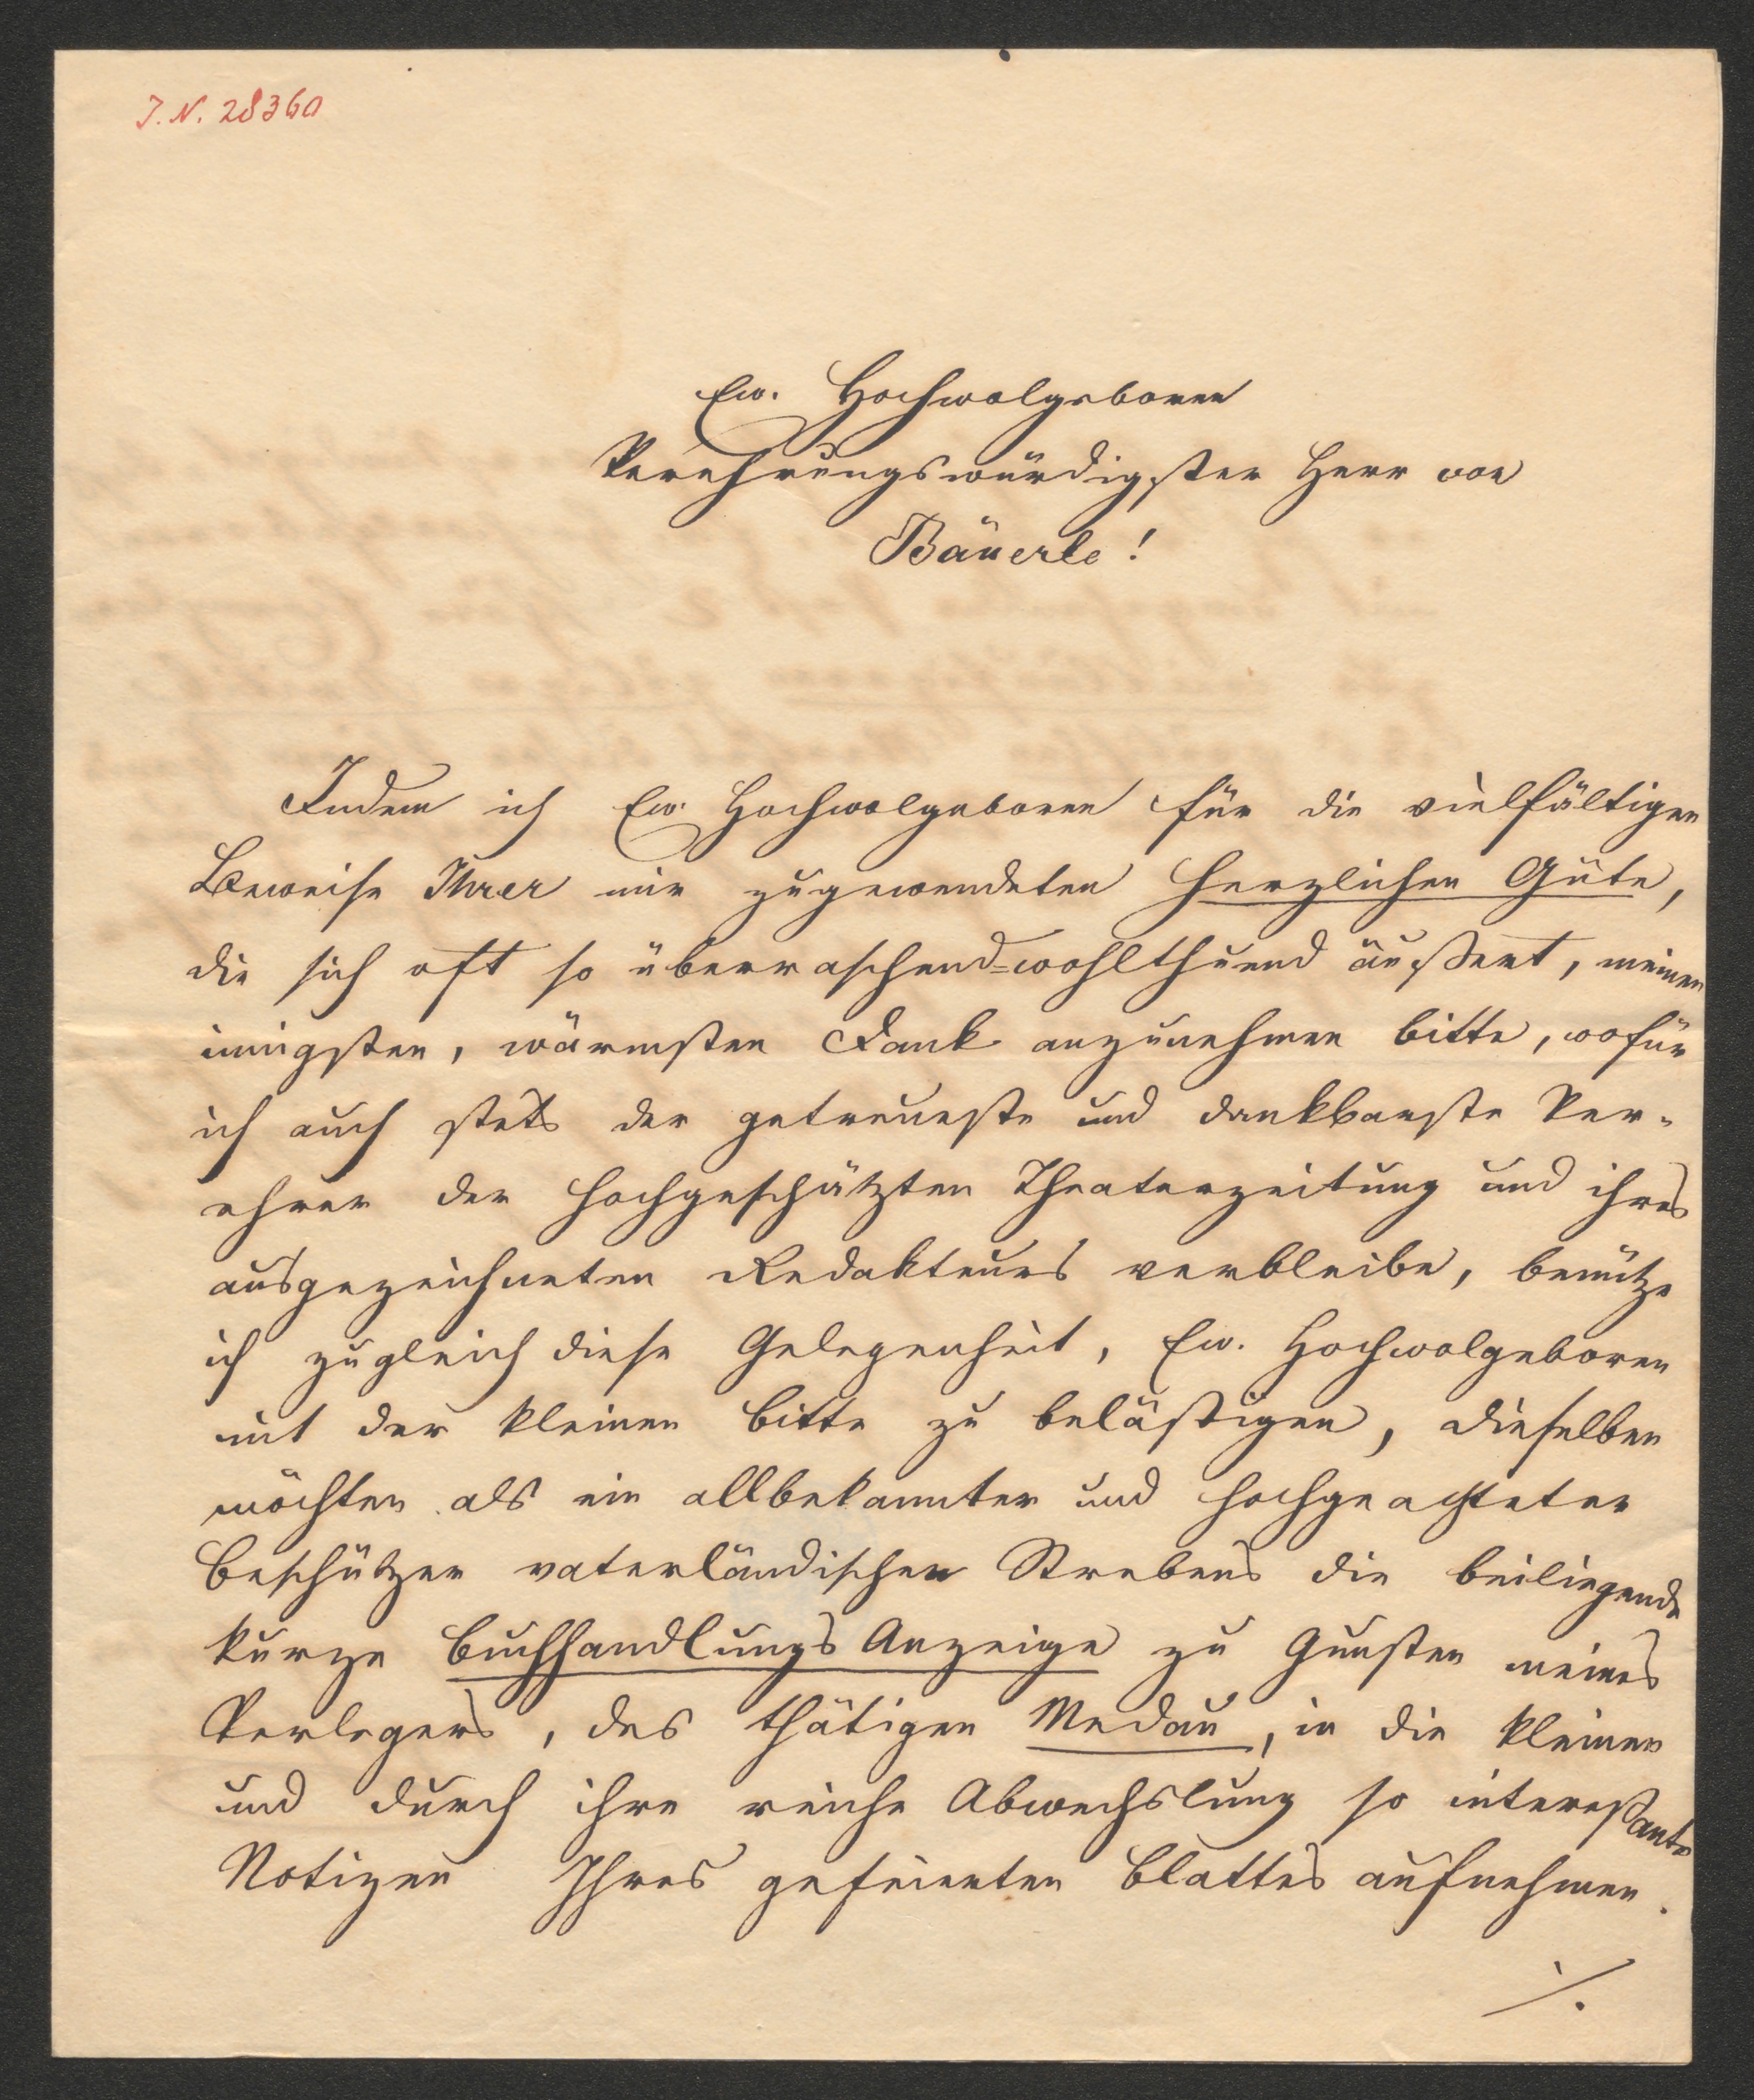 J. N. 28360
Ew. Hochwolgeboren
Verehrungswürdigster Herr von
Bäuerle!
Indem ich Ew. Hochwolgeboren für die vielfältigen
Beweise Ihrer mir zugewendeten herzlichen Güte,
die sich oft so überraschend=wohlthuend äußert, meinen
innigsten, wärmsten Dank anzunehmen bitte, wofür
ich auch stets der getreueste und dankbarste Ver-
ehrer der hochgeschätzten Theaterzeitung und ihres
ausgezeichneten Redakteurs verbleibe, benütze
ich zugleich diese Gelegenheit, Ew. Hochwolgeboren
mit der kleinen Bitte zu belästigen, dieselben
möchten als ein allbekannter und hochgeachteter
Beschützer vaterländischen Strebens die beiliegende
kurze Buchhandlungs Anzeige zu Gunsten meines
Verlegers, des thätigen Medau, in die kleinen
und durch ihre reiche Abwechslung so interessante
Notizen Ihres gefeierten Blattes aufnehmen.
./.